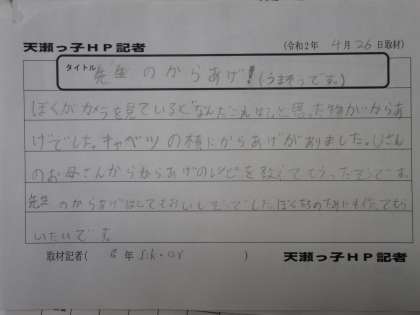 天瀬っ子HP記者 (令和2年 4月26日取材)
タイトル 先生のからあげ!(うまそうです。)
ぼくがカメラを見ているとなんだこれは?と思った物がからあ
げでした。キャベツの横にからあげがありました。Uさん
のお母さんからからあげのレシピを教えてもらったそうです。
先生のからあげはとてもおいしそうでした。ぼくたちのためにも作ってもら
いたいです。
取材記者( 6年 ) 天瀬っ子HP記者